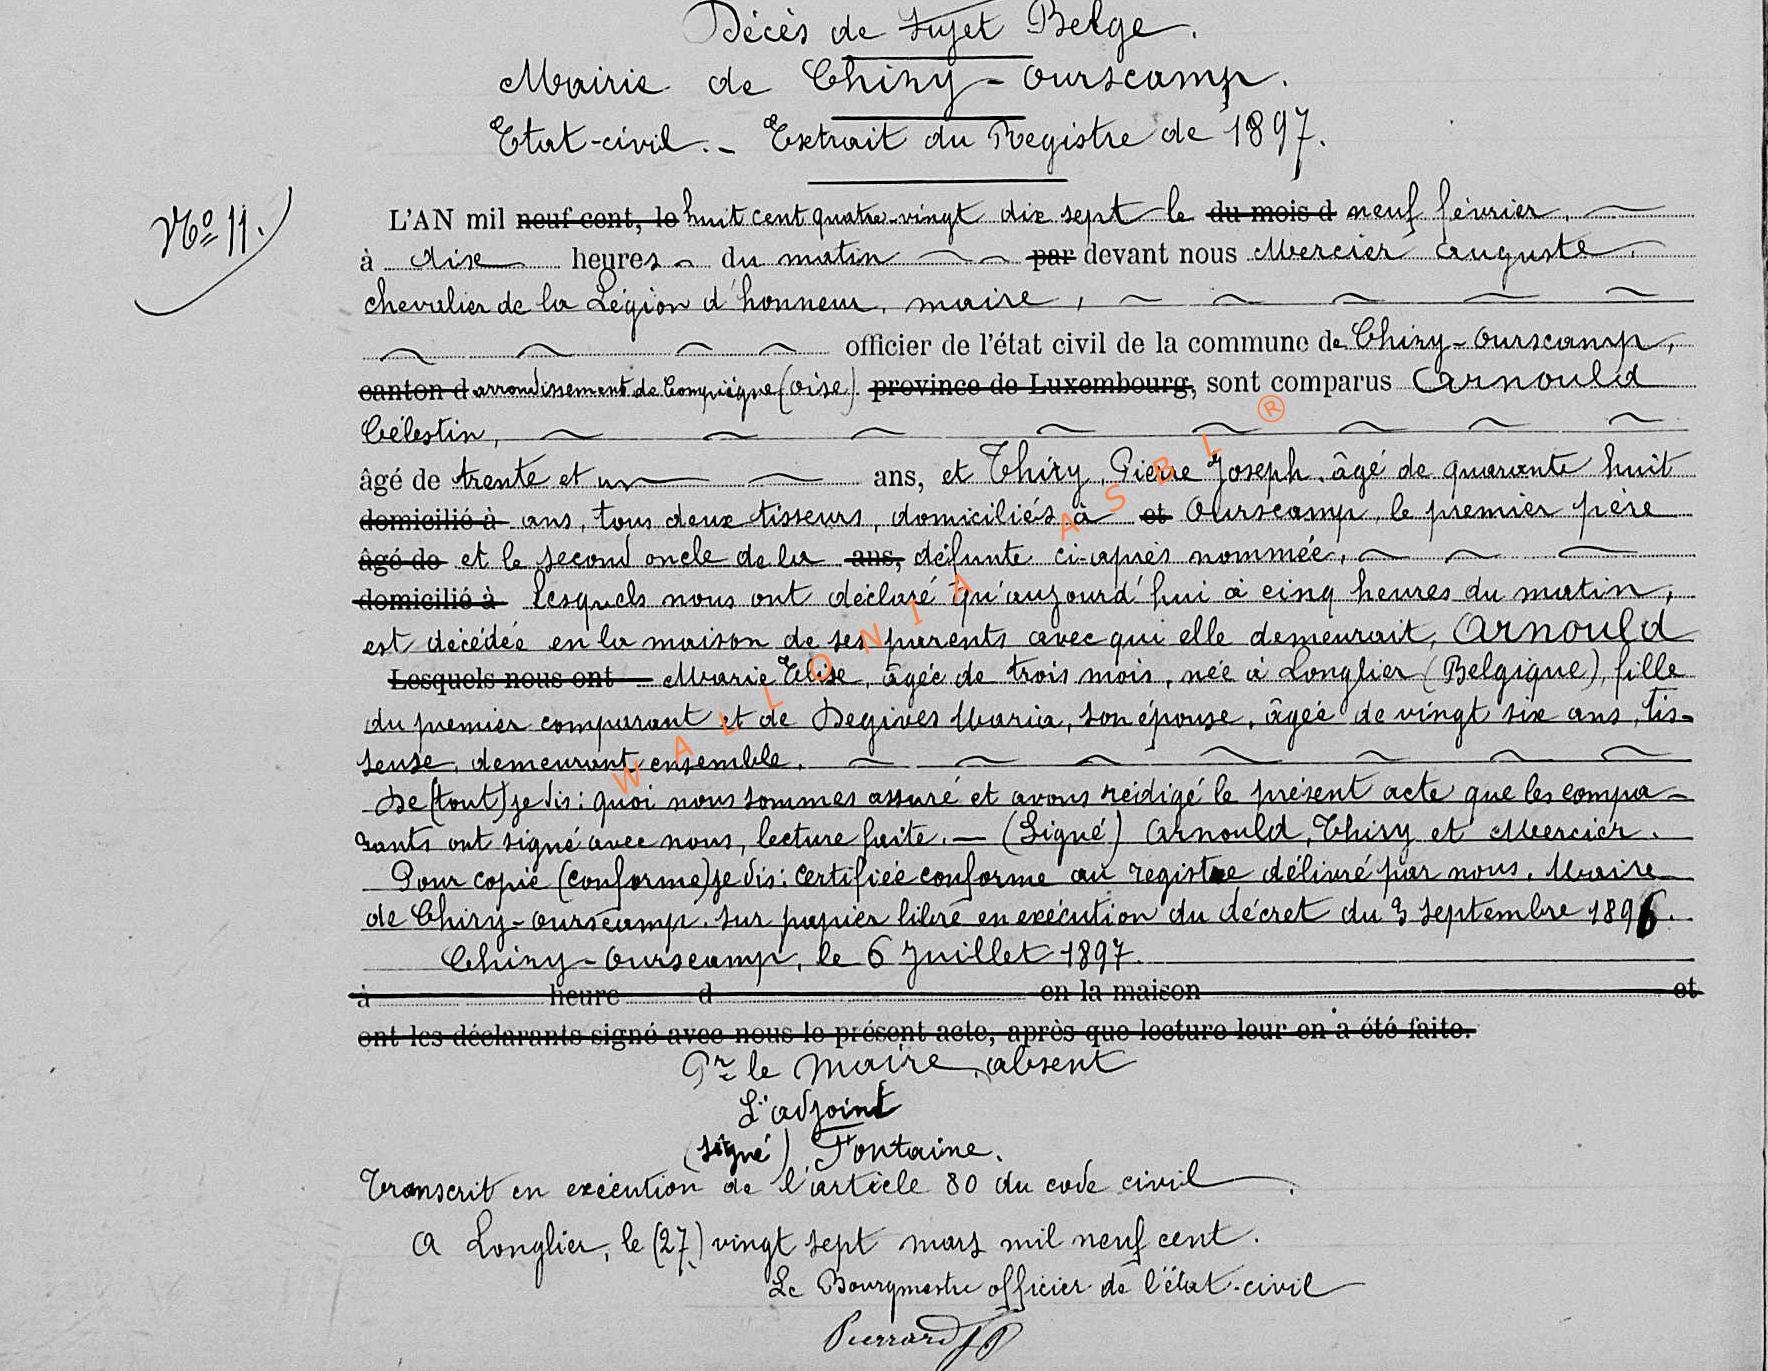 Décès de sujet Belge.
Mairie de Chiry-Ourscamp.
Etat-civil. - Extrait du Registre de 1897.
N° 11.
L'AN mil neuf cent, le huit cent quatre-vingt dix sept le du mois d neuf février,
à dix heures du matin par devant nous Mercier Auguste,
chevalier de la Légion d'honneur, maire,
officier de l'état civil de la commune de Chiry-Ourscamp,
canton d arrondissement de Compiègne (Oise) province de Luxembourg, sont comparus Arnould
Célestin,
âgé de trente et un ans, et Thiry, Pierre Joseph, âgé de quarante huit
domicilié à ans, tous deux tisseurs, domiciliés à et Ourscamp, le premier père
âgé de et le second oncle de la ans, défunte ci-après nommée,
domicilié à lesquels nous ont déclaré qu'aujourd'hui à cinq heures du matin,
est décédée en la maison de ses parents avec qui elle demeurait, Arnould
Lesquels nous ont Marie Elise, âgée de trois mois, née à Longlier (Belgique), fille
du premier comparant et de Degives Maria, son épouse, âgée de vingt six ans, tis-
seuse, demeurant ensemble.
De (tout) je dis: quoi nous sommes assuré et avons rédigé le présent acte que les compa-
rants ont signé avec nous, lecture faite. — (Signé) Arnould, Thiry et Mercier.
Pour copie (conforme) je dis: certifiée conforme au registre délivré par nous, Maire
de Chiry-Ourscamp, sur papier libre en exécution du décret du 3 septembre 1896.
Chiry-Ourscamp, le 6 Juillet 1897.
à heure d en la maison et
ont les déclarants signé avec nous le présent acte, après que lecture leur en a été faite.
Pr le Maire, absent
L'adjoint
(signé) Fontaine.
Transcrit en exécution de l'article 80 du code civil
A Longlier, le (27) vingt sept mars mil neuf cent.
Le Bourgmestre officier de l'état-civil
Pierrard JP
WALLONIA ASBL ®